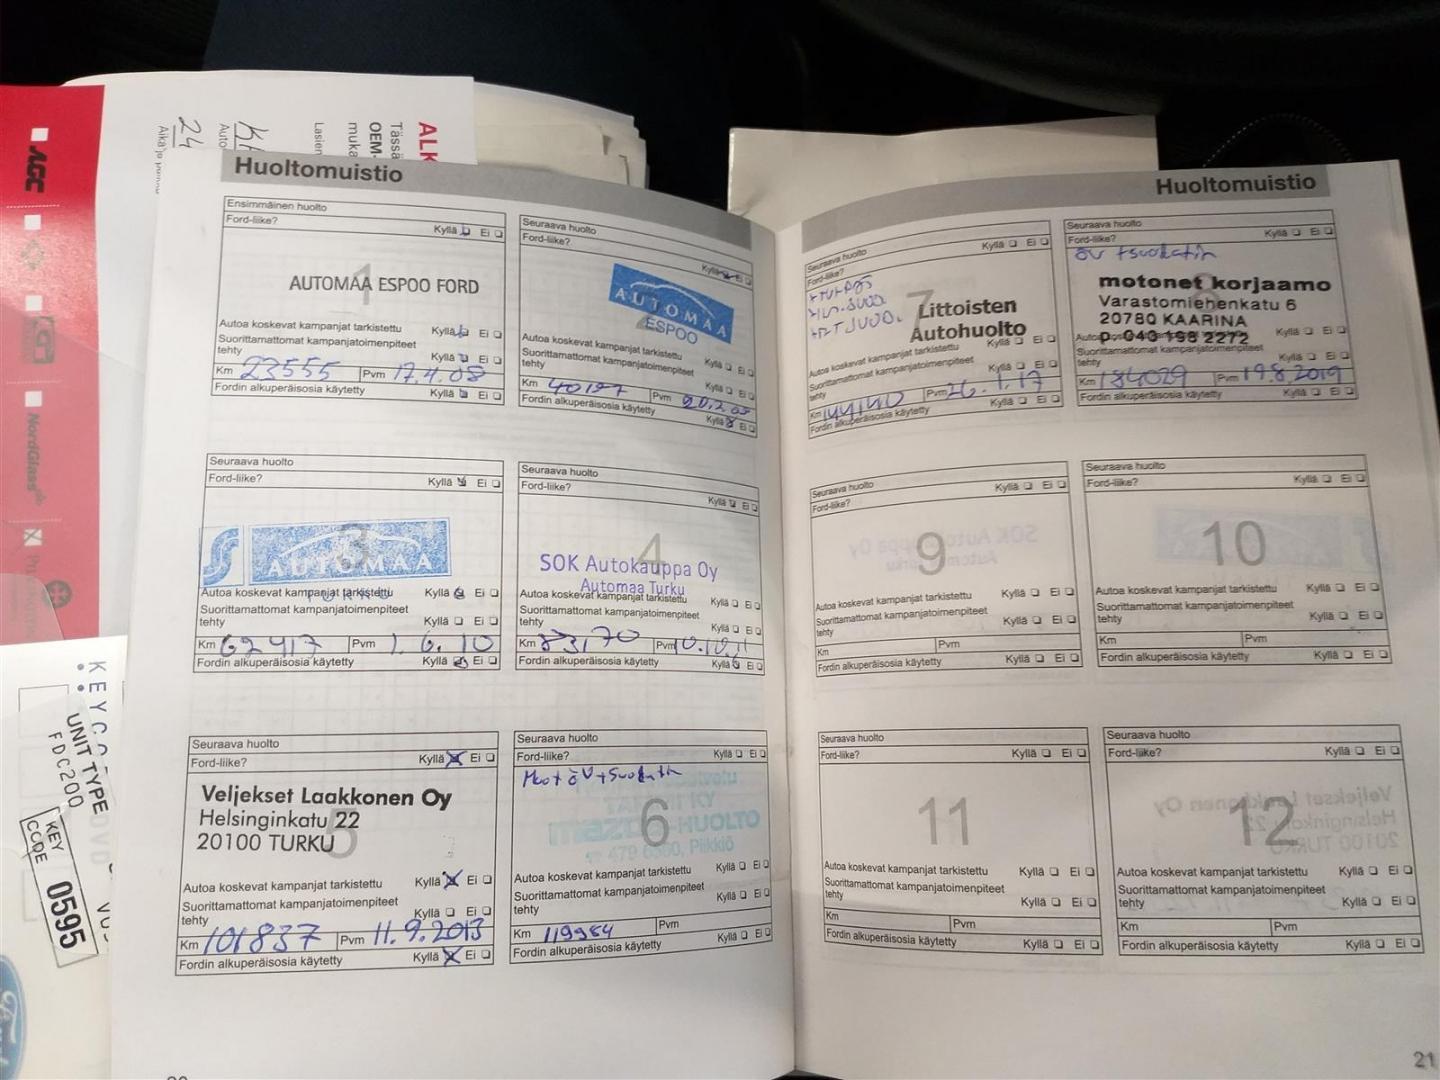 AGC
NordGlass
ALK
Tässä
OEM-
muka
Lasien
Auto
24
KEYC
UNIT TYPE
FDC200
KEY
CODE
0595
Huoltomuistio
Ensimmäinen huolto
Ford-liike?
Kyllä Ei
1
AUTOMAA ESPOO FORD
Autoa koskevat kampanjat tarkistettu Kyllä Ei
Suorittamattomat kampanjatoimenpiteet
tehty Kyllä Ei
Km 23555 Pvm 17.4.08
Fordin alkuperäisosia käytetty Kyllä Ei
Seuraava huolto
Ford-liike?
Kyllä Ei
2
AUTOMAA
ESPOO
Autoa koskevat kampanjat tarkistettu Kyllä Ei
Suorittamattomat kampanjatoimenpiteet
tehty Kyllä Ei
Km 40197 Pvm
Fordin alkuperäisosia käytetty Kyllä Ei
Seuraava huolto
Ford-liike? Kyllä Ei
3
AUTOMAA
Autoa koskevat kampanjat tarkistettu Kyllä Ei
Suorittamattomat kampanjatoimenpiteet
tehty Kyllä Ei
Km 62417 Pvm 1.6.10
Fordin alkuperäisosia käytetty Kyllä Ei
Seuraava huolto
Ford-liike? Kyllä Ei
4
SOK Autokauppa Oy
Automaa Turku
Autoa koskevat kampanjat tarkistettu Kyllä Ei
Suorittamattomat kampanjatoimenpiteet
tehty Kyllä Ei
Km 83170 Pvm 10.10.11
Fordin alkuperäisosia käytetty Kyllä Ei
Seuraava huolto
Ford-liike? Kyllä Ei
5
Veljekset Laakkonen Oy
Helsinginkatu 22
20100 TURKU
Autoa koskevat kampanjat tarkistettu Kyllä Ei
Suorittamattomat kampanjatoimenpiteet
tehty Kyllä Ei
Km 101837 Pvm 11.9.2013
Fordin alkuperäisosia käytetty Kyllä Ei
Seuraava huolto
Ford-liike? Kyllä Ei
6
KY
mazda-HUOLTO
Piikkiö
Autoa koskevat kampanjat tarkistettu Kyllä Ei
Suorittamattomat kampanjatoimenpiteet
tehty Kyllä Ei
Km 119984 Pvm
Fordin alkuperäisosia käytetty Kyllä Ei
Huoltomuistio
Seuraava huolto
Ford-liike? Kyllä Ei
7
Littoisten
Autohuolto
Autoa koskevat kampanjat tarkistettu Kyllä Ei
Suorittamattomat kampanjatoimenpiteet
tehty Kyllä Ei
Km 144140 Pvm 26.1.17
Fordin alkuperäisosia käytetty Kyllä Ei
Seuraava huolto
Ford-liike? Kyllä Ei
öv+suodatin
8
motonet korjaamo
Varastomiehenkatu 6
20780 KAARINA
p. 043 198 2272
Kyllä Ei
Suorittamattomat kampanjatoimenpiteet
tehty Kyllä Ei
Km 184029 Pvm 19.8.2019
Fordin alkuperäisosia käytetty Kyllä Ei
Seuraava huolto
Ford-liike? Kyllä Ei
9
Autoa koskevat kampanjat tarkistettu Kyllä Ei
Suorittamattomat kampanjatoimenpiteet
tehty Kyllä Ei
Km Pvm
Fordin alkuperäisosia käytetty Kyllä Ei
Seuraava huolto
Ford-liike? Kyllä Ei
10
Autoa koskevat kampanjat tarkistettu Kyllä Ei
Suorittamattomat kampanjatoimenpiteet
tehty Kyllä Ei
Km Pvm
Fordin alkuperäisosia käytetty Kyllä Ei
Seuraava huolto
Ford-liike? Kyllä Ei
11
Autoa koskevat kampanjat tarkistettu Kyllä Ei
Suorittamattomat kampanjatoimenpiteet
tehty Kyllä Ei
Km Pvm
Fordin alkuperäisosia käytetty Kyllä Ei
Seuraava huolto
Ford-liike? Kyllä Ei
12
Autoa koskevat kampanjat tarkistettu Kyllä Ei
Suorittamattomat kampanjatoimenpiteet
tehty Kyllä Ei
Km Pvm
Fordin alkuperäisosia käytetty Kyllä Ei
21